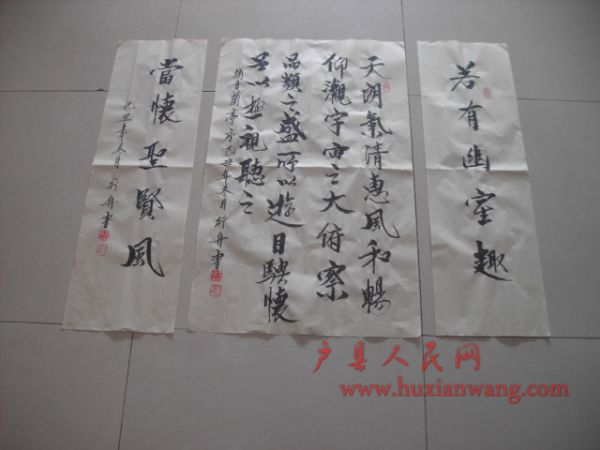 若有幽室趣
天朗氣清惠風和暢
仰觀宇宙之大俯察
品類之盛所以遊目騁懷
足以極視聽之
摘自蘭亭序己丑年春月行舟書
當懷聖賢風
己丑年春月行舟書
户县人民网
www.huxianwang.com